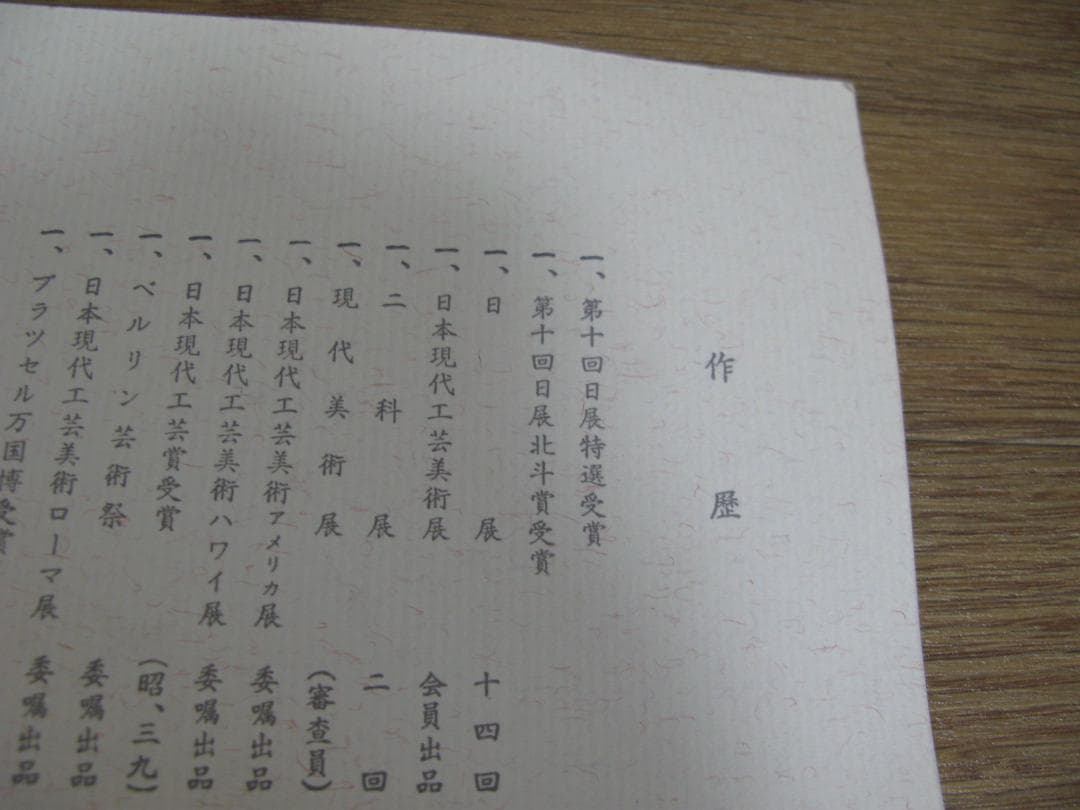 作歴
一、第十回日展特選受賞
一、第十回日展北斗賞受賞
一、日展 十四回
一、日本現代工芸美術展 会員出品
一、二科展 二回
一、現代美術展 (審査員)
一、日本現代工芸美術アメリカ展 委嘱出品
一、日本現代工芸美術ハワイ展 委嘱出品
一、日本現代工芸賞受賞 (昭、三九)
一、ベルリン芸術祭 委嘱出品
一、日本現代工芸美術ローマ展 委嘱出品
一、ブラツセル万国博受賞